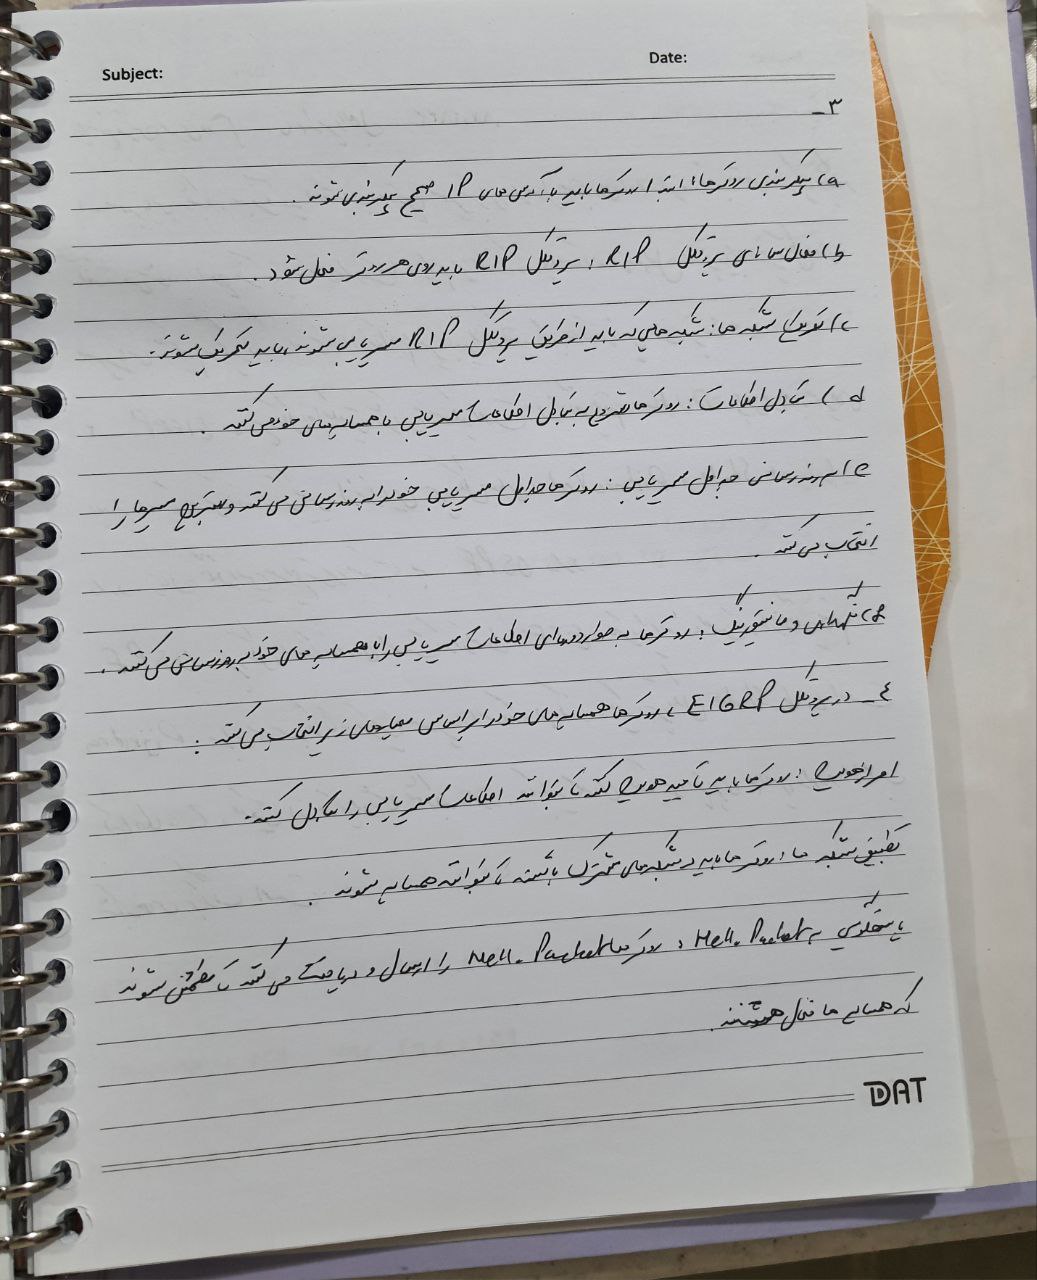 Subject:
Date:
۳_
a) پیکربندی روترها: ابتدا روترها باید با آدرس های IP صحیح پیکربندی شوند.
b) فعال سازی پروتکل RIP: پروتکل RIP باید روی هر روتر فعال شود.
c) شبکه ها: شبکه هایی که باید از طریق پروتکل RIP مسیریابی شوند، باید شوند.
d) تبادل اطلاعات: روترها شروع به تبادل اطلاعات مسیریابی با همسایه های خود می کنند.
e) به روزرسانی جداول مسیریابی: روترها جداول مسیریابی خود را به روزرسانی می کنند و بهترین مسیرها را
انتخاب می کنند.
نگهداری و مانیتورینگ: روترها به صورت دوره ای اطلاعات مسیریابی را با همسایه های خود به روزرسانی می کنند.
٤_ در پروتکل EIGRP، روترها همسایه های خود را بر اساس معیارهای زیر انتخاب می کنند:
احراز هویت: روترها باید تأیید هویت کنند تا بتوانند اطلاعات مسیریابی را تبادل کنند.
تطبیق شبکه ها: روترها باید در شبکه های مشترک باشند تا بتوانند همسایه شوند.
پاسخگویی به Hello Packet: روترها Hello Packet را ارسال و دریافت می کنند تا مطمئن شوند
که همسایه ها فعال هستند.
DAT